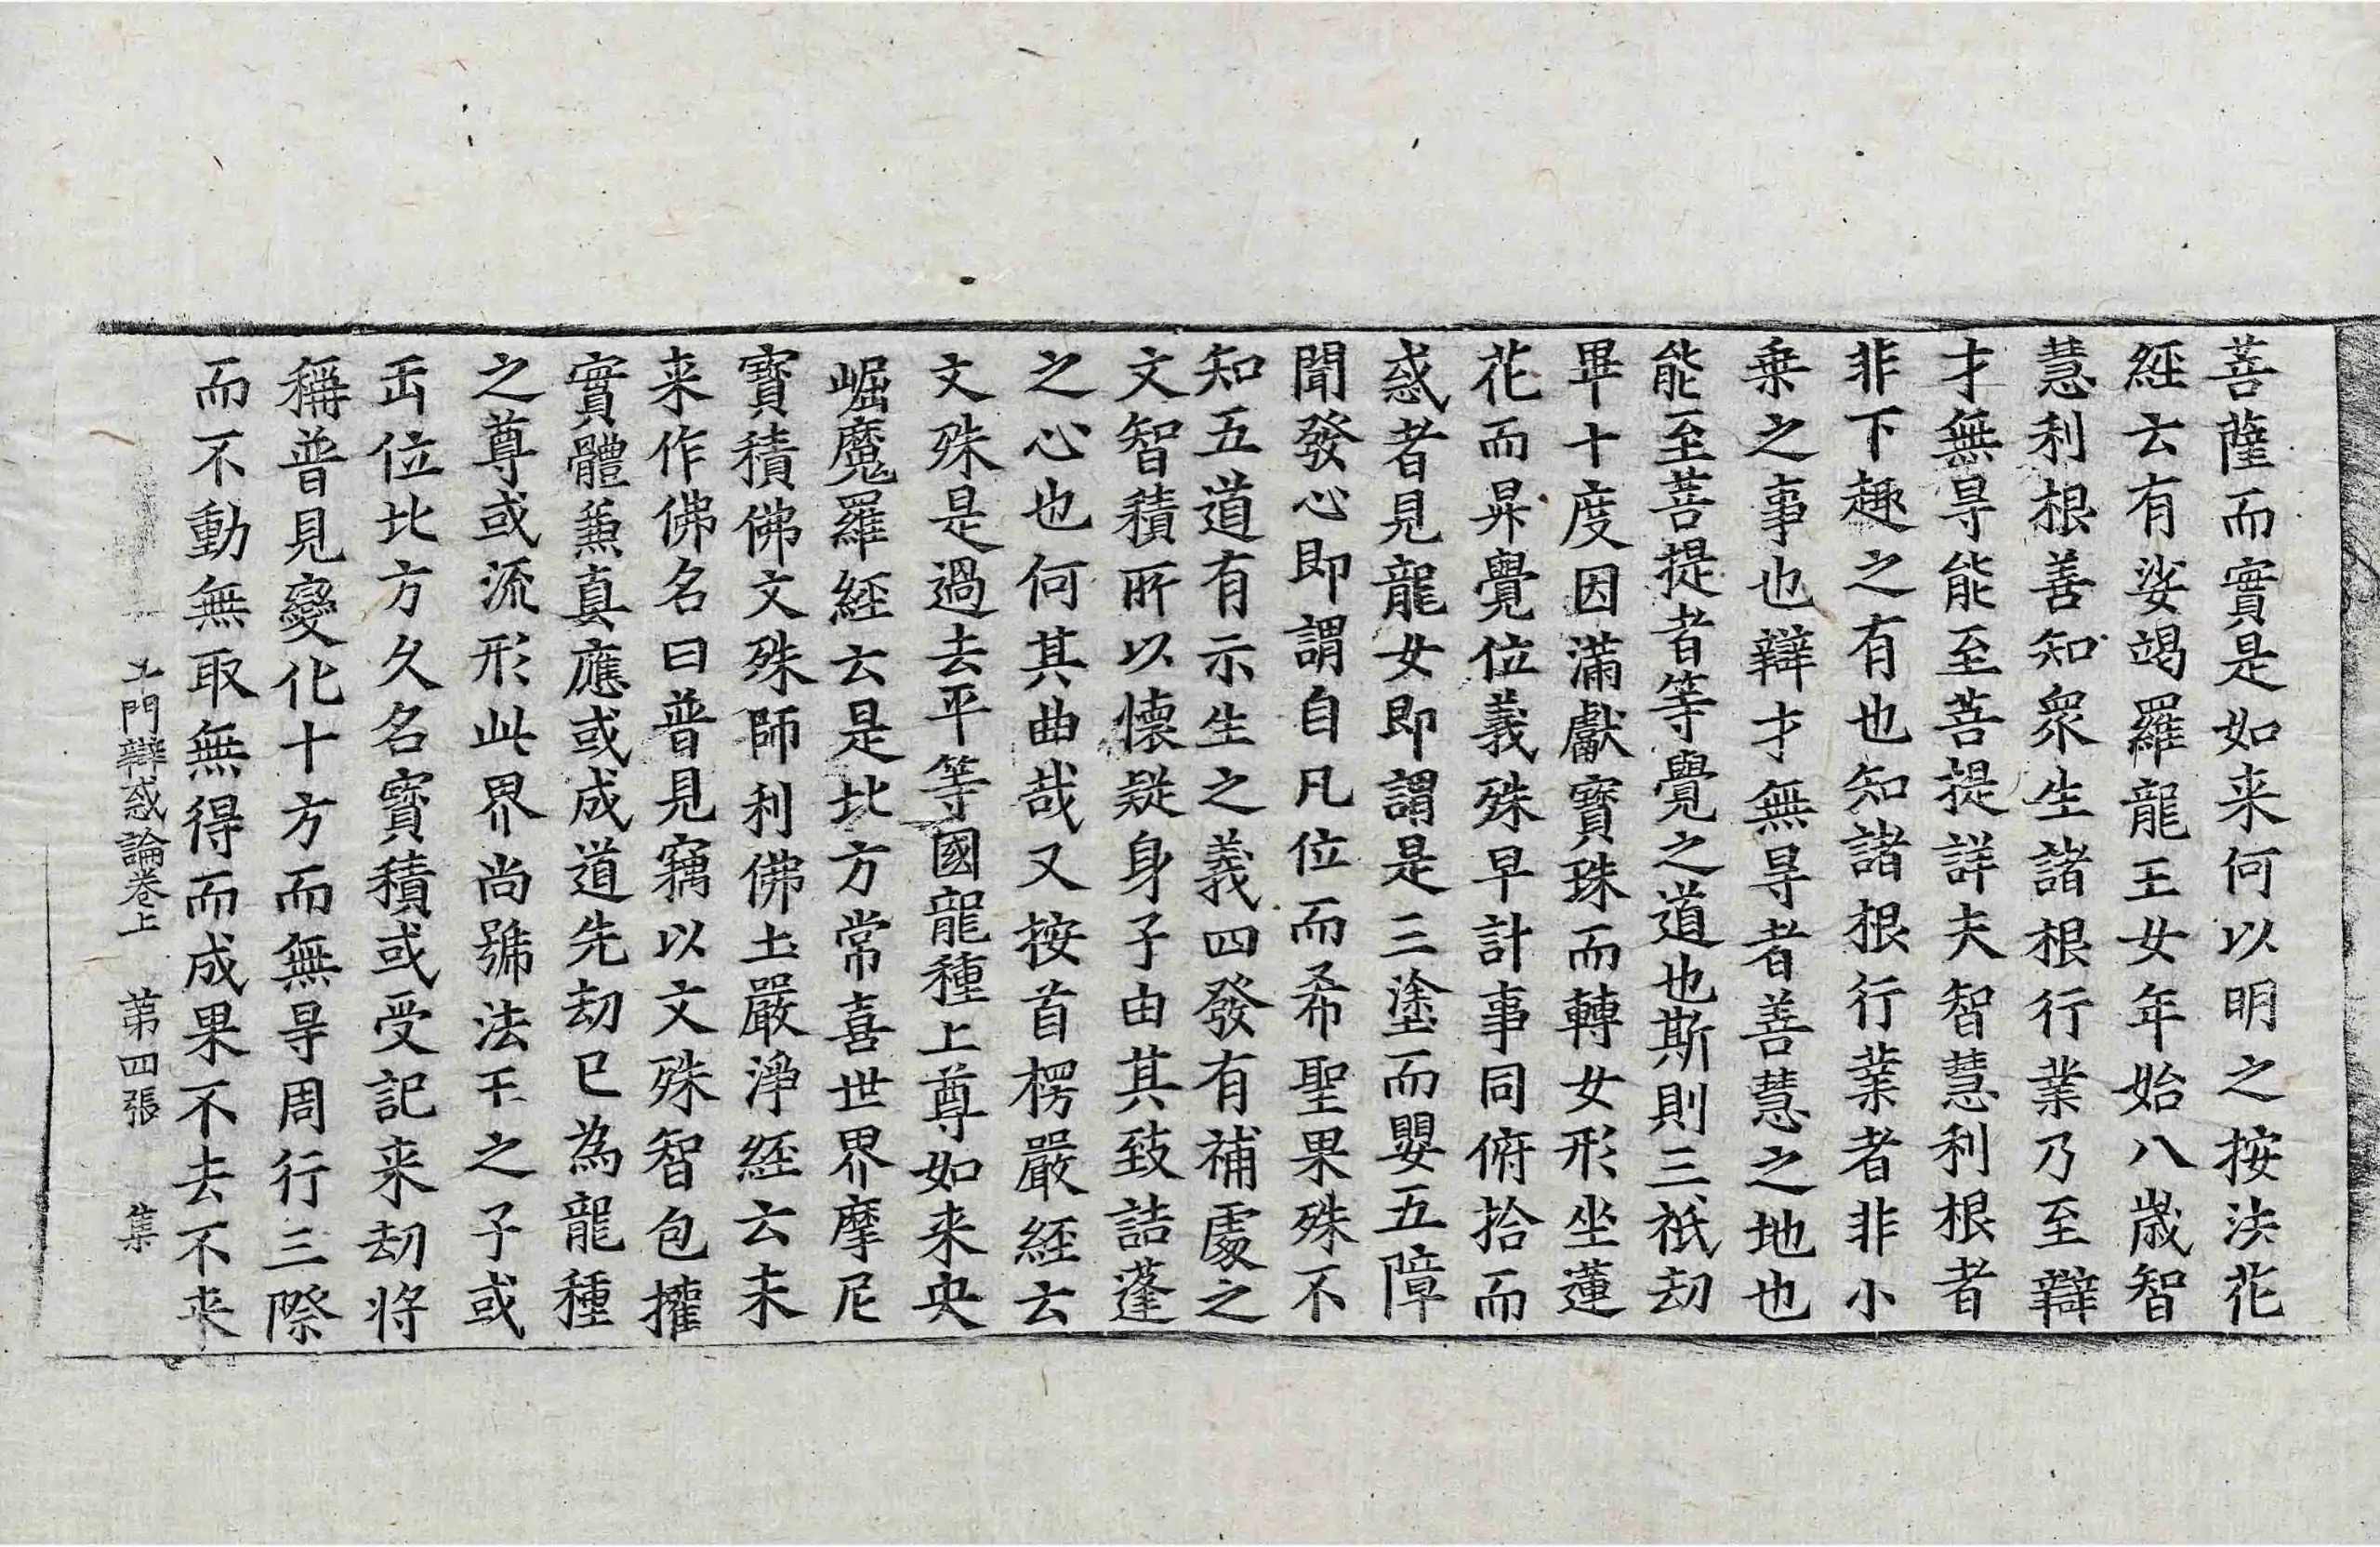 菩薩而實是如来何以明之按法花
經云有娑竭羅龍王女年始八歳智
慧利根善知衆生諸根行業乃至辯
才無㝵能至菩提詳夫智慧利根者
非下趣之有也知諸根行業者非小
乗之事也辯才無㝵者善慧之地也
能至菩提者等覺之道也斯則三祇劫
畢十度因滿獻寳珠而轉女形坐蓮
花而昇覺位義殊早計事同俯拾而
惑者見龍女即謂是三塗而嬰五障
聞發心即謂自凡位而希聖果殊不
知五道有示生之義四發有補處之
文智積所以懷疑身子由其致詰蓬
之心也何其曲哉又按首楞嚴經云
文殊是過去平等國龍種上尊如来央
崛魔羅經云是北方常喜世界摩尼
寳積佛文殊師利佛土嚴淨經云未
来作佛名曰普見竊以文殊智包權
實體兼真應或成道先劫已為龍種
之尊或流形此界尚號法王之子或
缶位北方久名寳積或受記来劫將
稱普見變化十方而無㝵周行三際
而不動無取無得而成果不去不来
十門辯惑論卷上　第四張　集